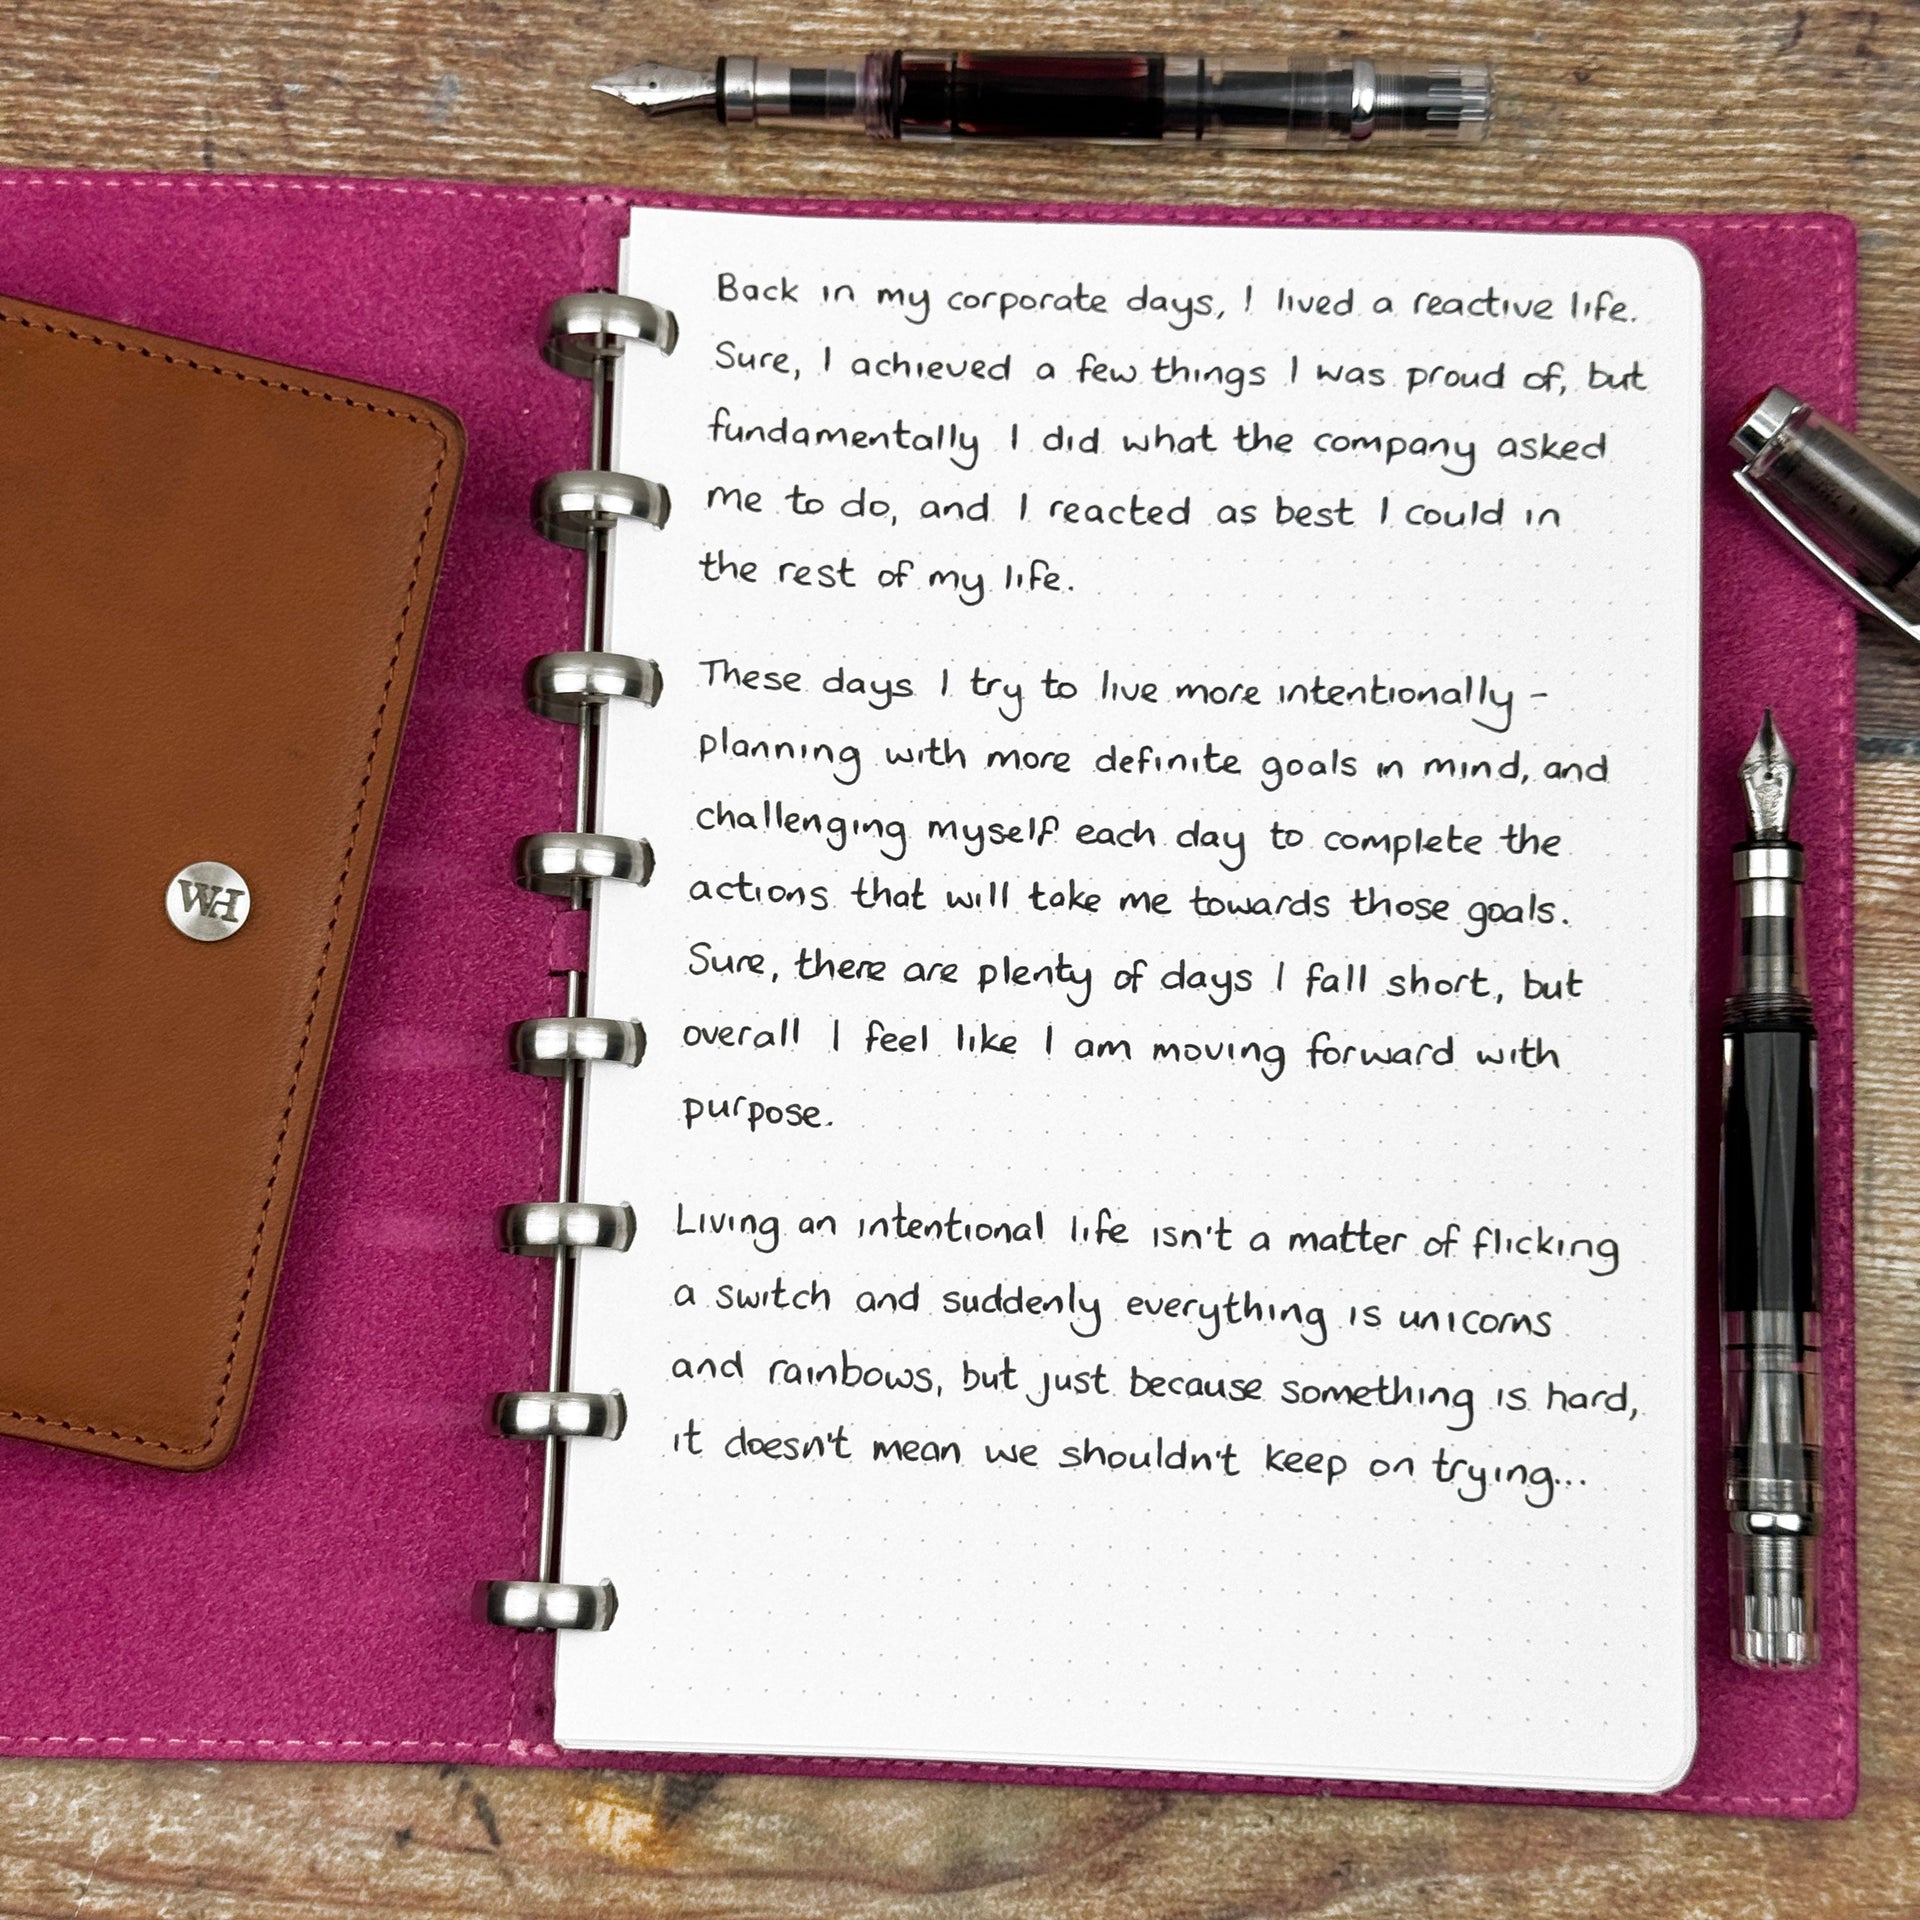 Back in my corporate days, I lived a reactive life.
Sure, I achieved a few things I was proud of, but
fundamentally I did what the company asked
me to do, and I reacted as best I could in
the rest of my life.
These days I try to live more intentionally -
planning with more definite goals in mind, and
challenging myself each day to complete the
actions that will take me towards those goals.
Sure, there are plenty of days I fall short, but
overall I feel like I am moving forward with
purpose.
Living an intentional life isn't a matter of flicking
a switch and suddenly everything is unicorns
and rainbows, but just because something is hard,
it doesn't mean we shouldn't keep on trying...
WH